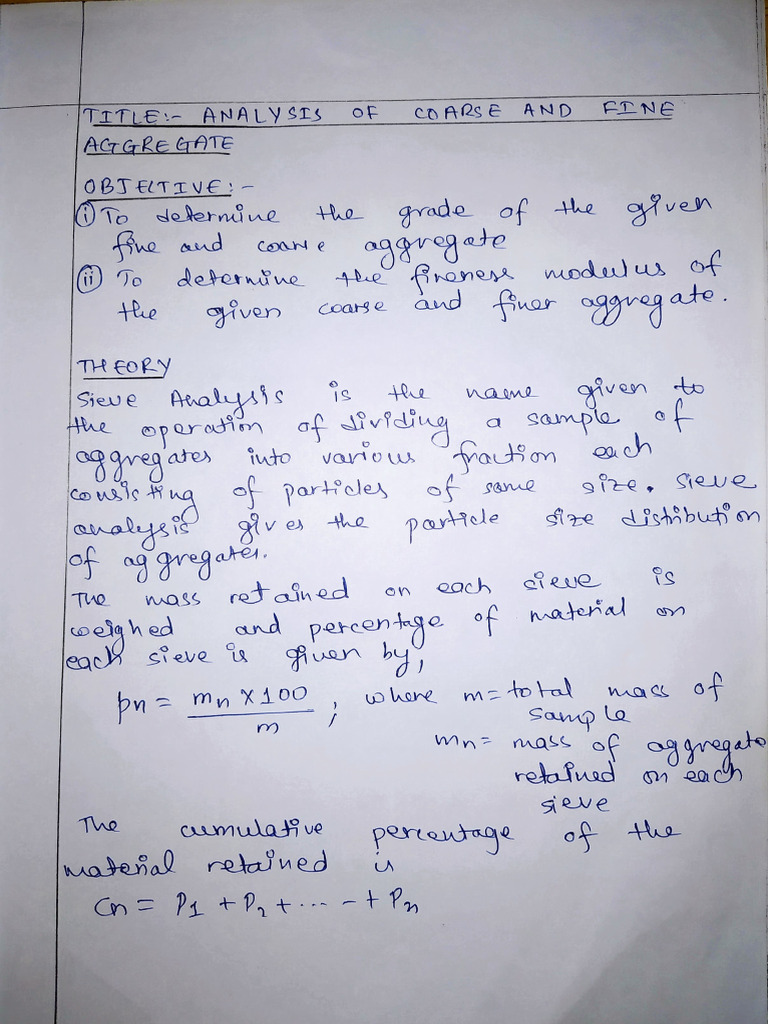 TITLE:- ANALYSIS OF COARSE AND FINE
AGGREGATE
OBJECTIVE:-
(i) To determine the grade of the given
fine and coarse aggregate
(ii) To determine the fineness modulus of
the given coarse and finer aggregate.
THEORY
Sieve Analysis is the name given to
the operation of dividing a sample of
aggregates into various fraction each
consisting of particles of same size. Sieve
analysis gives the particle size distribution
of aggregates.
The mass retained on each sieve is
weighed and percentage of material on
each sieve is given by,
pn = mn X 100 / m ; where m = total mass of
sample
mn = mass of aggregate
retained on each
sieve
The cumulative percentage of the
material retained is
Cn = P1 + P2 + ... - + Pn